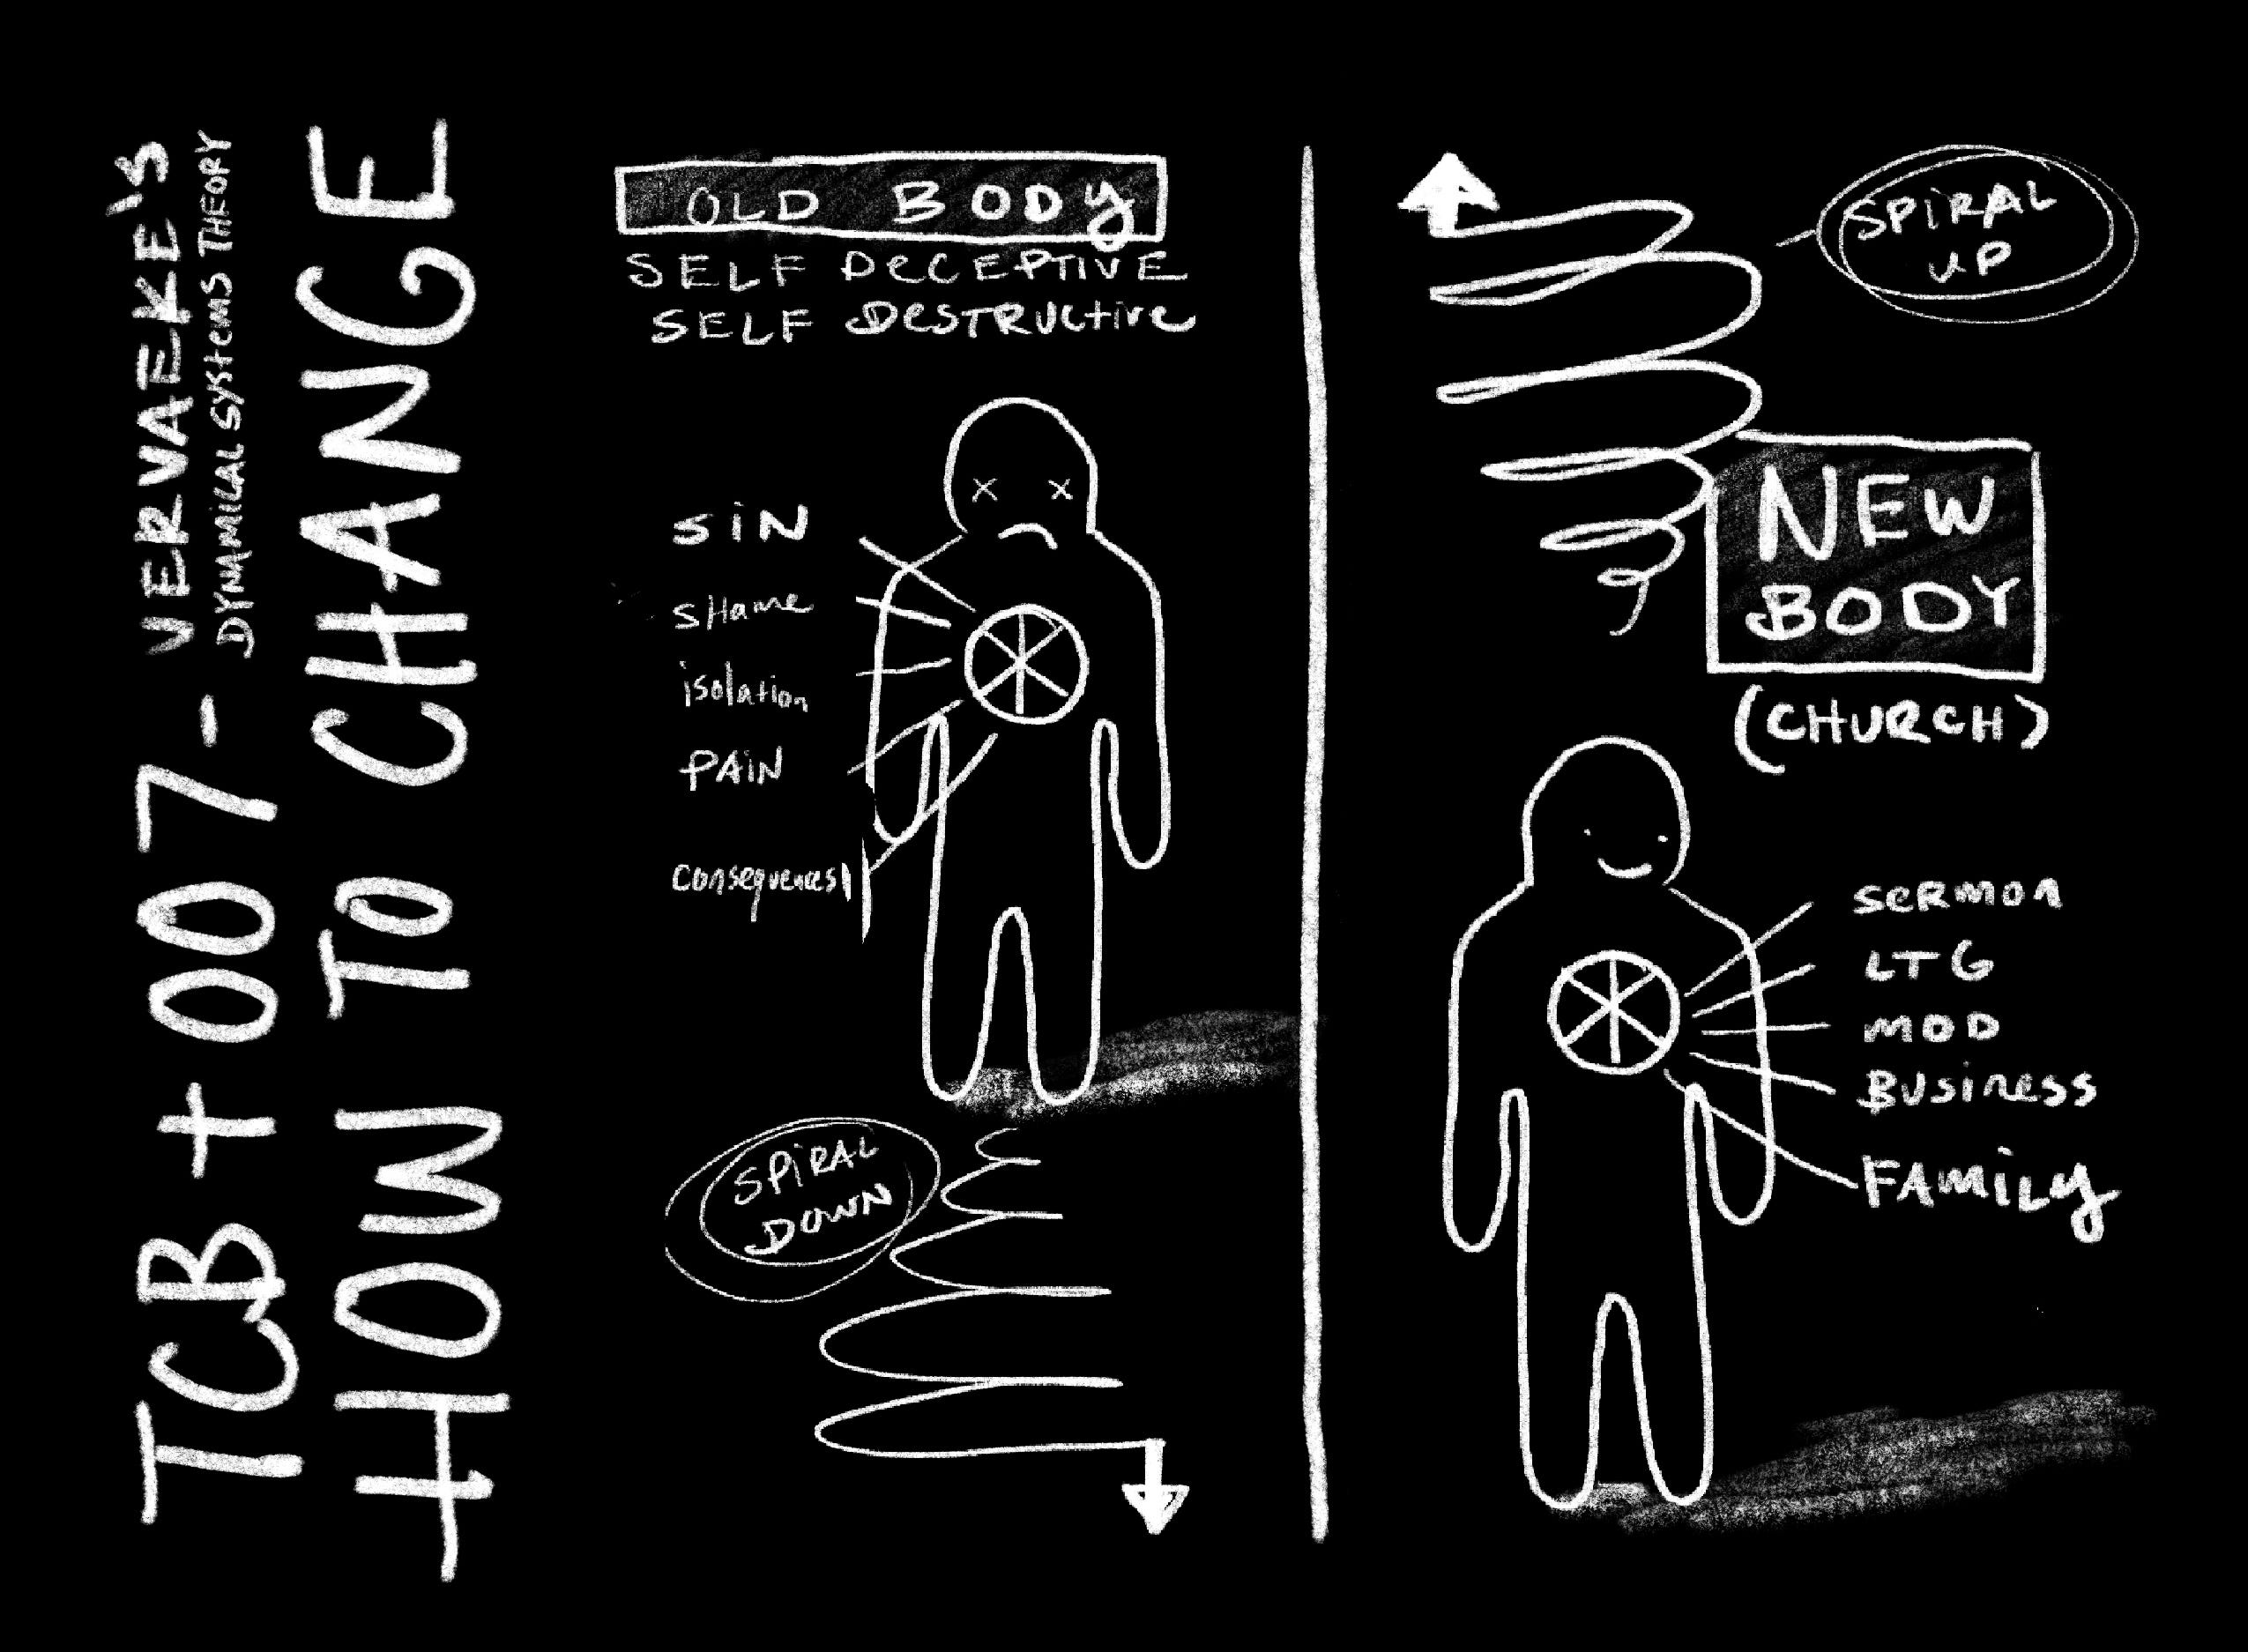 TCB + 007 - VERVAEKE'S
DYNAMICAL SYSTEMS THEORY
HOW TO CHANGE
OLD BODy
SELF DECEPTIVE
SELF DESTRUCtive
SiN
SHame
isolation
PAiN
consequences
SPiRAL
DOWN
SPiRAL
UP
NEW
BODY
(CHURCH)
SeRmon
LTG
MOD
BUSiness
FAMiLy